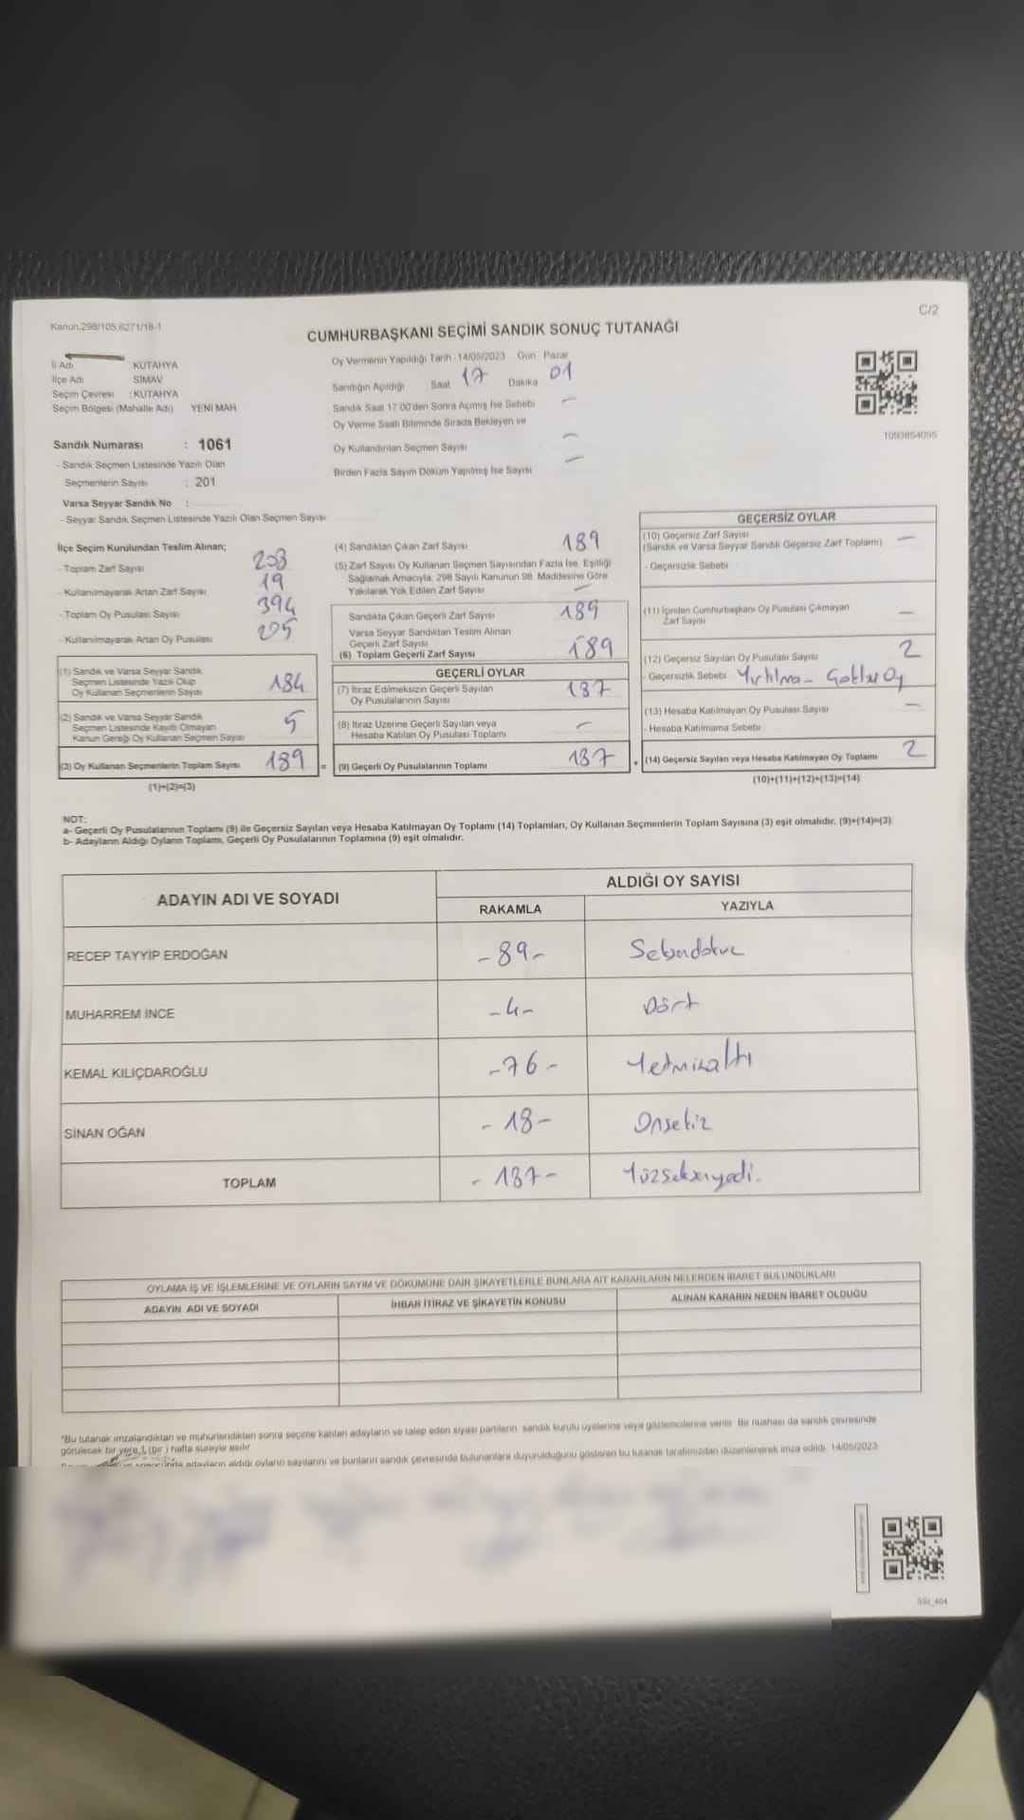 Kanun.298/105,6271/18-1
C/2
CUMHURBAŞKANI SEÇİMİ SANDIK SONUÇ TUTANAĞI
İl Adı : KÜTAHYA
İlçe Adı : SİMAV
Seçim Çevresi : KÜTAHYA
Seçim Bölgesi (Mahalle Adı) YENİ MAH
Oy Vermenin Yapıldığı Tarih : 14/05/2023 Gün Pazar
Sandığın Açıldığı Saat 17 Dakika 01
Sandık Saat 17.00'den Sonra Açılmış İse Sebebi —
Oy Verme Saati Bitiminde Sırada Bekleyen ve
Oy Kullandırılan Seçmen Sayısı —
Birden Fazla Sayım Döküm Yapılmış İse Sayısı —
1093854095
Sandık Numarası : 1061
- Sandık Seçmen Listesinde Yazılı Olan
Seçmenlerin Sayısı : 201
Varsa Seyyar Sandık No :
- Seyyar Sandık Seçmen Listesinde Yazılı Olan Seçmen Sayısı
İlçe Seçim Kurulundan Teslim Alınan;
- Toplam Zarf Sayısı 208
- Kullanılmayarak Artan Zarf Sayısı 19
- Toplam Oy Pusulası Sayısı 394
- Kullanılmayarak Artan Oy Pusulası 205
(1) Sandık ve Varsa Seyyar Sandık
Seçmen Listesinde Yazılı Olup
Oy Kullanan Seçmenlerin Sayısı 184
(2) Sandık ve Varsa Seyyar Sandık
Seçmen Listesinde Kayıtlı Olmayan
Kanun Gereği Oy Kullanan Seçmen Sayısı 5
(3) Oy Kullanan Seçmenlerin Toplam Sayısı 189 =
(1)+(2)=(3)
(4) Sandıktan Çıkan Zarf Sayısı 189
(5) Zarf Sayısı Oy Kullanan Seçmen Sayısından Fazla İse, Eşitliği
Sağlamak Amacıyla, 298 Sayılı Kanunun 98. Maddesine Göre
Yakılarak Yok Edilen Zarf Sayısı —
Sandıkta Çıkan Geçerli Zarf Sayısı 189
Varsa Seyyar Sandıktan Teslim Alınan
Geçerli Zarf Sayısı
(6) Toplam Geçerli Zarf Sayısı 189
GEÇERLİ OYLAR
(7) İtiraz Edilmeksizin Geçerli Sayılan
Oy Pusulalarının Sayısı 187
(8) İtiraz Üzerine Geçerli Sayılan veya
Hesaba Katılan Oy Pusulası Toplamı —
(9) Geçerli Oy Pusulalarının Toplamı 187 +
GEÇERSİZ OYLAR
(10) Geçersiz Zarf Sayısı
(Sandık ve Varsa Seyyar Sandık Geçersiz Zarf Toplamı) —
- Geçersizlik Sebebi
(11) İçinden Cumhurbaşkanı Oy Pusulası Çıkmayan
Zarf Sayısı —
(12) Geçersiz Sayılan Oy Pusulası Sayısı 2
- Geçersizlik Sebebi Yırtılma -
(13) Hesaba Katılmayan Oy Pusulası Sayısı —
- Hesaba Katılmama Sebebi
(14) Geçersiz Sayılan veya Hesaba Katılmayan Oy Toplamı 2
(10)+(11)+(12)+(13)=(14)
NOT:
a- Geçerli Oy Pusulalarının Toplamı (9) ile Geçersiz Sayılan veya Hesaba Katılmayan Oy Toplamı (14) Toplamları, Oy Kullanan Seçmenlerin Toplam Sayısına (3) eşit olmalıdır. (9)+(14)=(3)
b- Adayların Aldığı Oyların Toplamı, Geçerli Oy Pusulalarının Toplamına (9) eşit olmalıdır.
ADAYIN ADI VE SOYADI
ALDIĞI OY SAYISI
RAKAMLA YAZIYLA
RECEP TAYYİP ERDOĞAN -89- Seksendokuz
MUHARREM İNCE -4- Dört
KEMAL KILIÇDAROĞLU -76- Yetmişaltı
SİNAN OĞAN -18- Onsekiz
TOPLAM -187- Yüzseksenyedi.
OYLAMA İŞ VE İŞLEMLERİNE VE OYLARIN SAYIM VE DÖKÜMÜNE DAİR ŞİKAYETLERLE BUNLARA AİT KARARLARIN NELERDEN İBARET BULUNDUKLARI
ADAYIN ADI VE SOYADI İHBAR İTİRAZ VE ŞİKAYETİN KONUSU ALINAN KARARIN NEDEN İBARET OLDUĞU
"Bu tutanak imzalandıktan ve mühürlendikten sonra seçime katılan adayların ve talep eden siyasi partilerin sandık kurulu üyelerine veya gözlemcilerine verilir. Bir nüshası da sandık çevresinde
görülecek bir yere 1 (bir) hafta süreyle asılır.
adayların aldığı oyların sayılarını ve bunların sandık çevresinde bulunanlara duyurulduğunu gösteren bu tutanak tarafımızdan düzenlenerek imza edildi. 14/05/2023